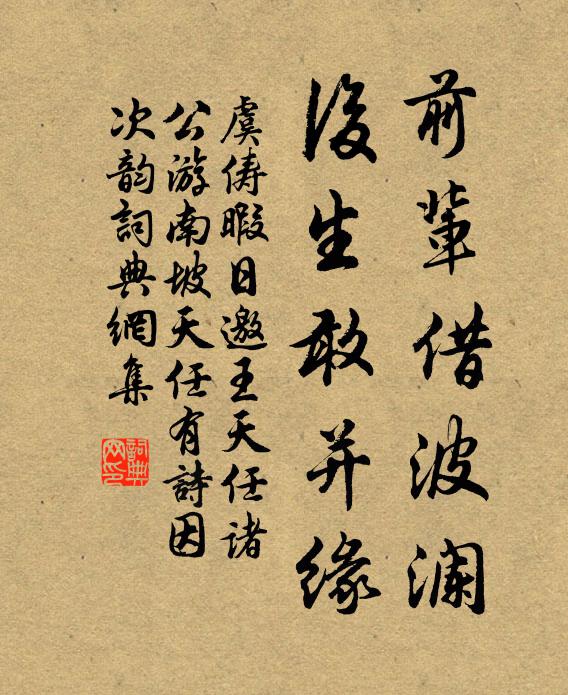 前輩借波澜
後生敢并緣
虞俦暇日邀王天任諸
公游南坡天任有詩因
次韵詞典網集
詞典网印